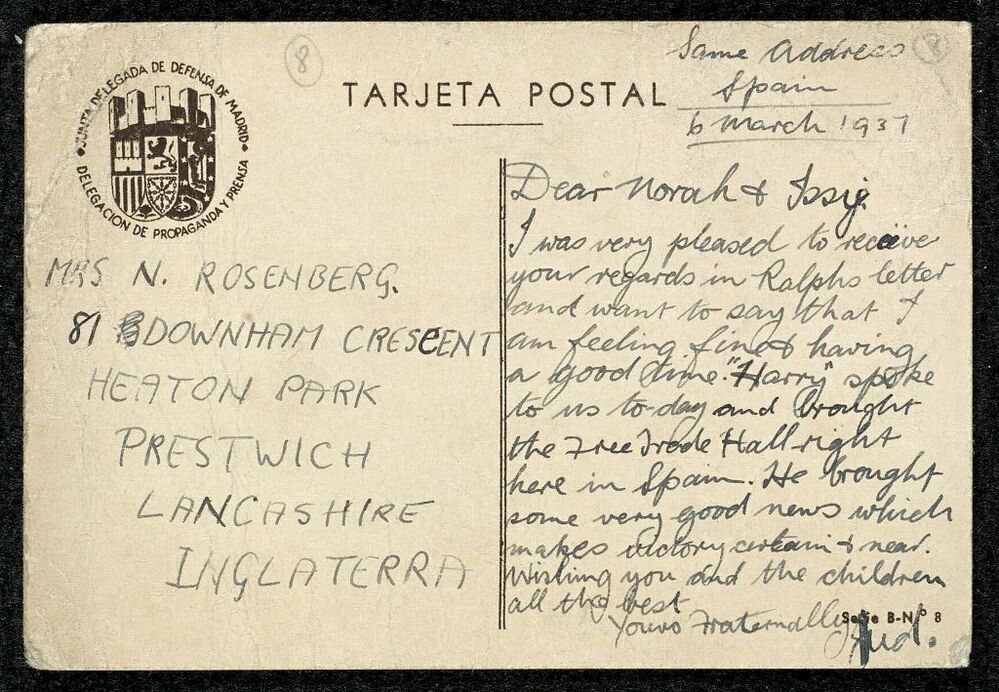 8
8
JUNTA DELEGADA DE DEFENSA DE MADRID
DELEGACION DE PROPAGANDA Y PRENSA
TARJETA POSTAL
Same Address
Spain
6 March 1937
MRS N. ROSENBERG.
81 DOWNHAM CRESCENT
HEATON PARK
PRESTWICH
LANCASHIRE
INGLATERRA
Dear Norah & Issy.
I was very pleased to receive
your regards in Ralphs letter
and want to say that I
am feeling fine & having
a good time. "Harry" spoke
to us to-day and brought
the Free Trade Hall right
here in Spain. He brought
some very good news which
makes victory certain & near.
Wishing you and the children
all the best
Yours Fraternally
Serie B-Nº 8